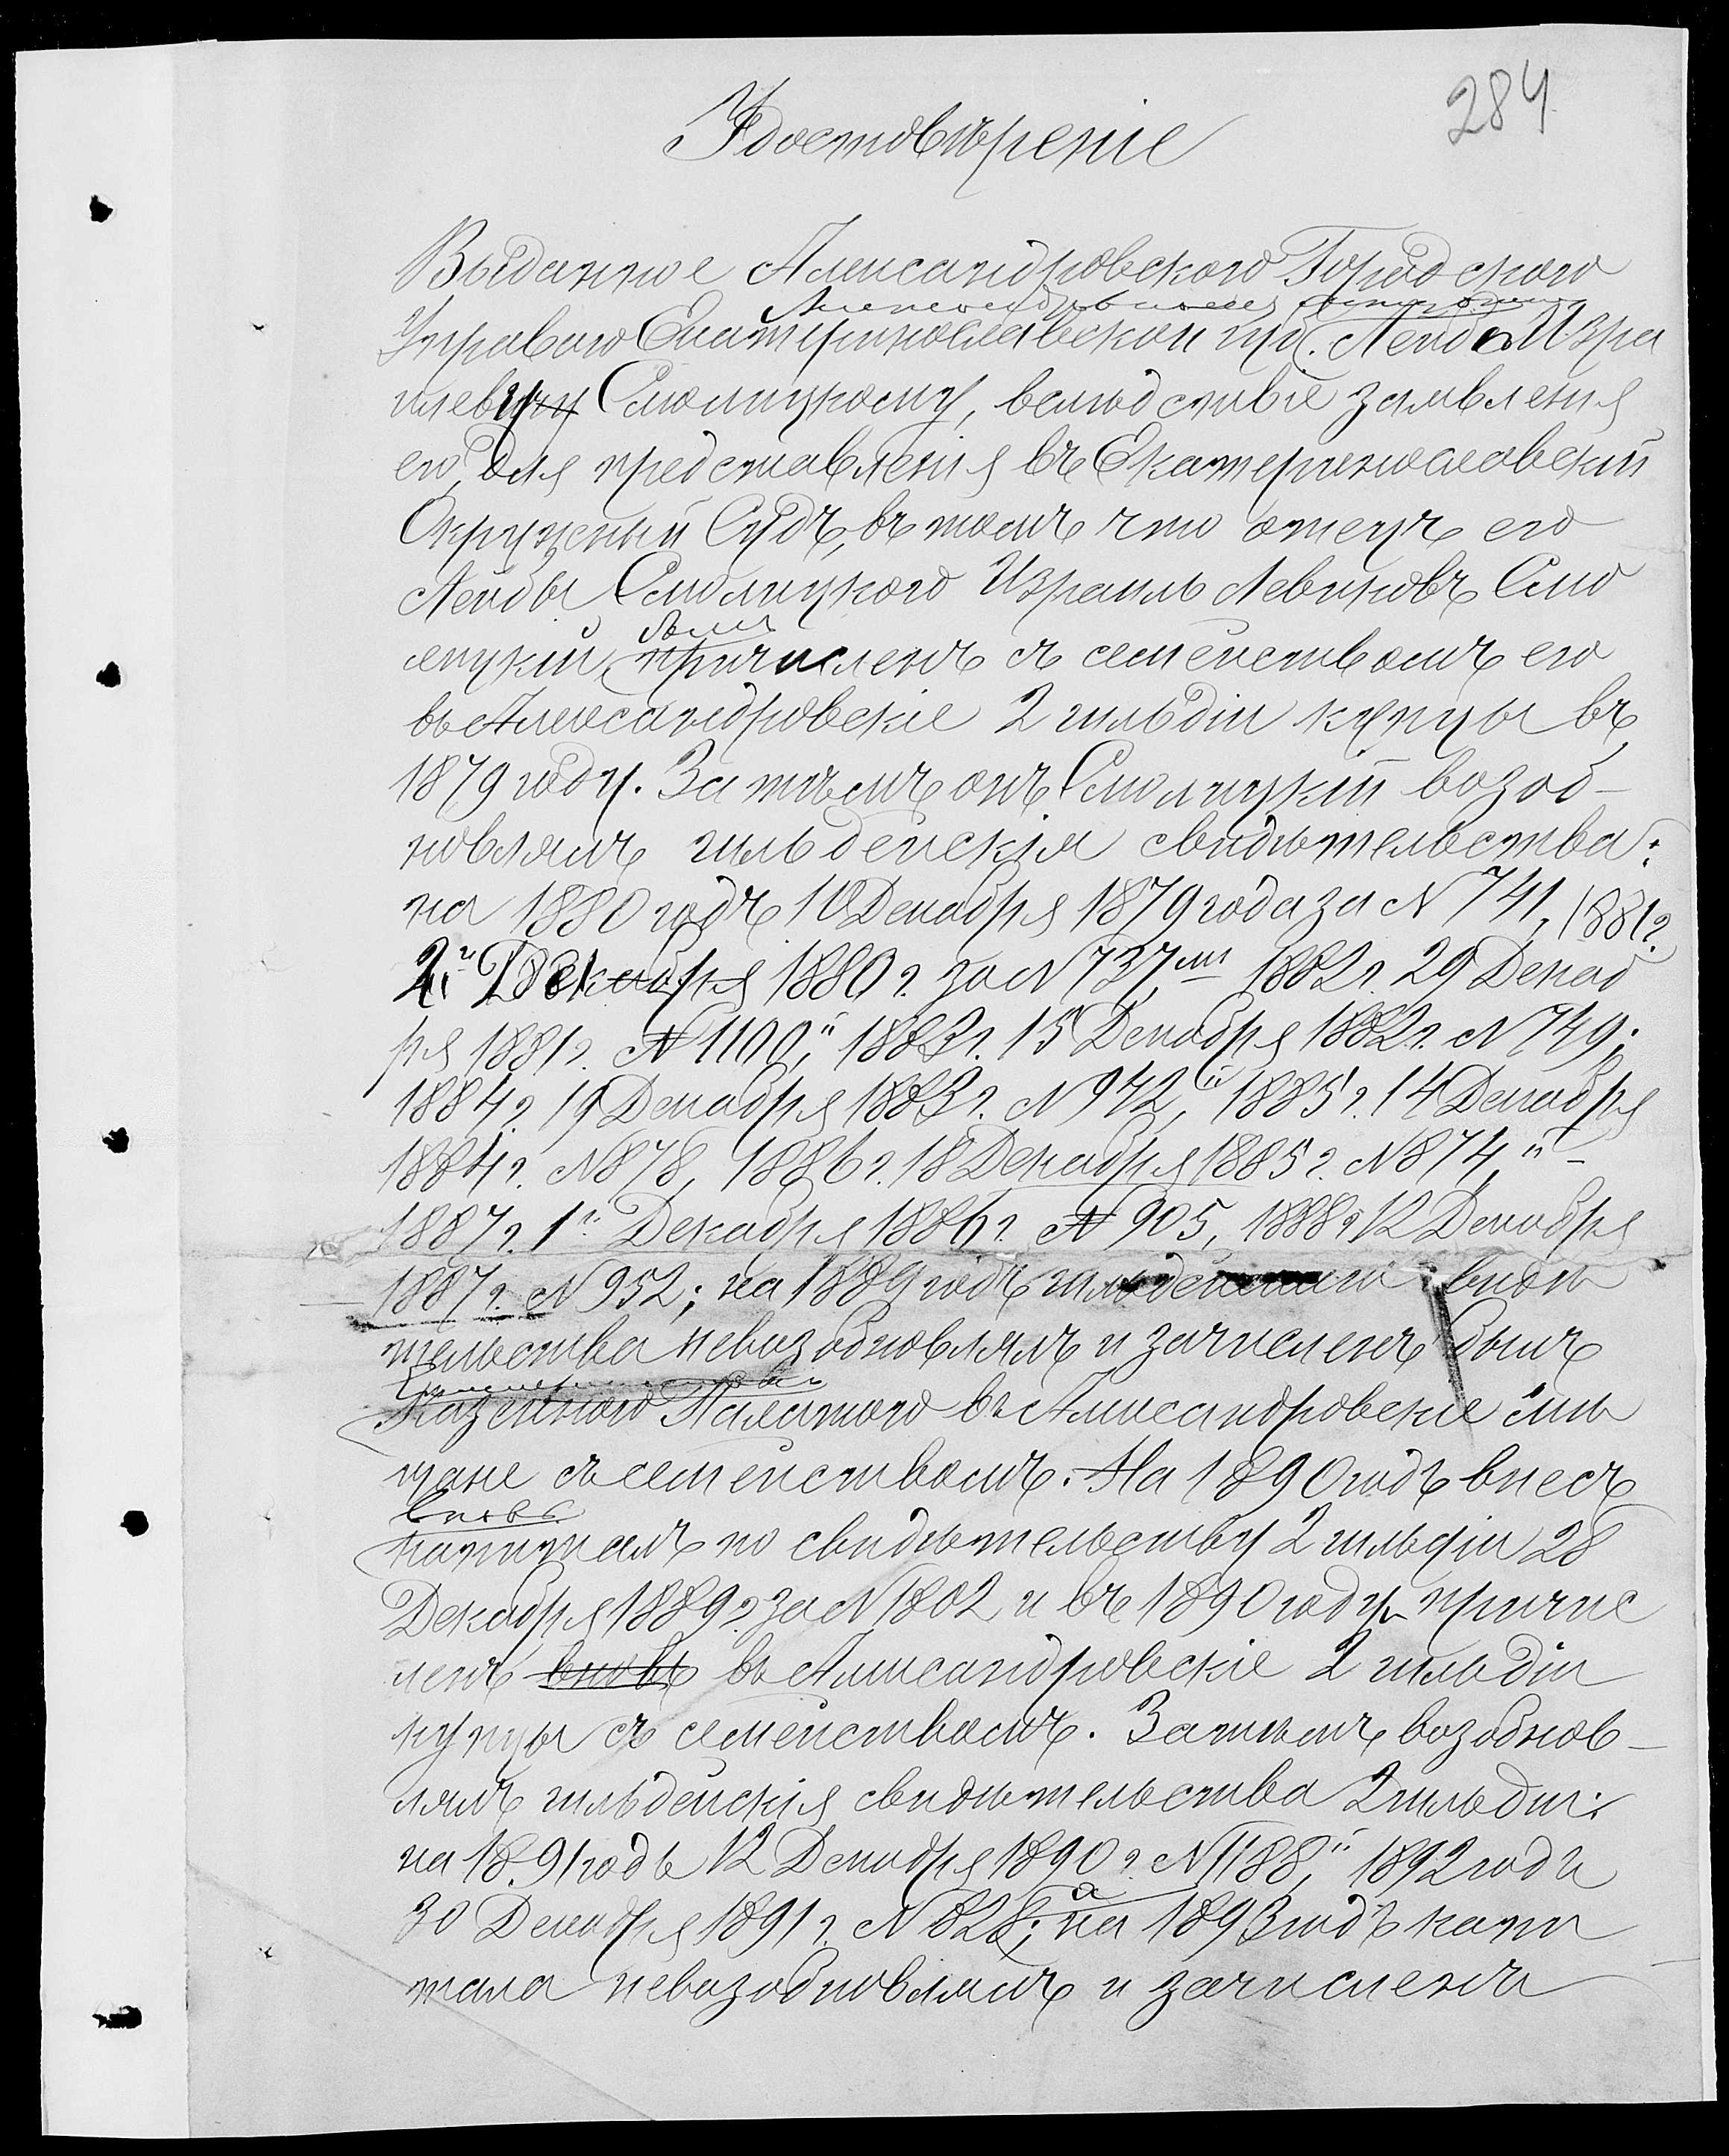 284
Удостовѣреніе
Выданное Александровскою Городскою
Александровскому
Управою Екатеринославской губ. Лейбѣ Изра
илевичу Смолицкому, вслѣдствіе заявленія
его, для представленія въ Екатеринославскій
Окружный Судъ, въ томъ что отецъ его
Лейбы Смолицкого Израиль Левиковъ Смо
былъ
лицкій, причисленъ съ семействомъ его
въ Александровскіе 2 гильдіи купцы въ
1879 году. Затѣмъ онъ Смолицкій возоб-
новлялъ гильдейскія свидѣтельства:
на 1880 годъ 10 Декабря 1879 года за N 741, 1881 г.
Декабря 1880 г. за N 737, 1882 г. 29 Декаб
ря 1881 г. N 1100, 1883 г. 15 Декабря 1882 г. N 749;
1884 г. 19 Декабря 1883 г. N 942, 1885 г. 14 Декабря
1884 г. N 878, 1886 г. 18 Декабря 1885 г. N 874,
1887 г. 1го Декабря 1886 г. N 905, 1888 г. 12 Декабря
1887 г. N 952; на 1889 годъ свидѣ
тельства невозобновлялъ и зачисленъ былъ
Казенною Палатою въ Александровскіе мѣ
щане съ семействомъ. На 1890 годъ внесъ
вновь
капиталъ по свидѣтельству 2 гильдіи 28
Декабря 1889 г. за N 1802 и въ 1890 году причис
ленъ вновь въ Александровскіе 2 гильдіи
купцы съ семействомъ. Затѣмъ возобнов-
лялъ гильдейскія свидѣтельства 2 гильдіи:
на 1891 годъ 12 Декабря 1890 г. N 1188, 1892 годъ
а
30 Декабря 1891 г. N 828; на 1893 годъ капи
тала невозобновлялъ и зачисленъ